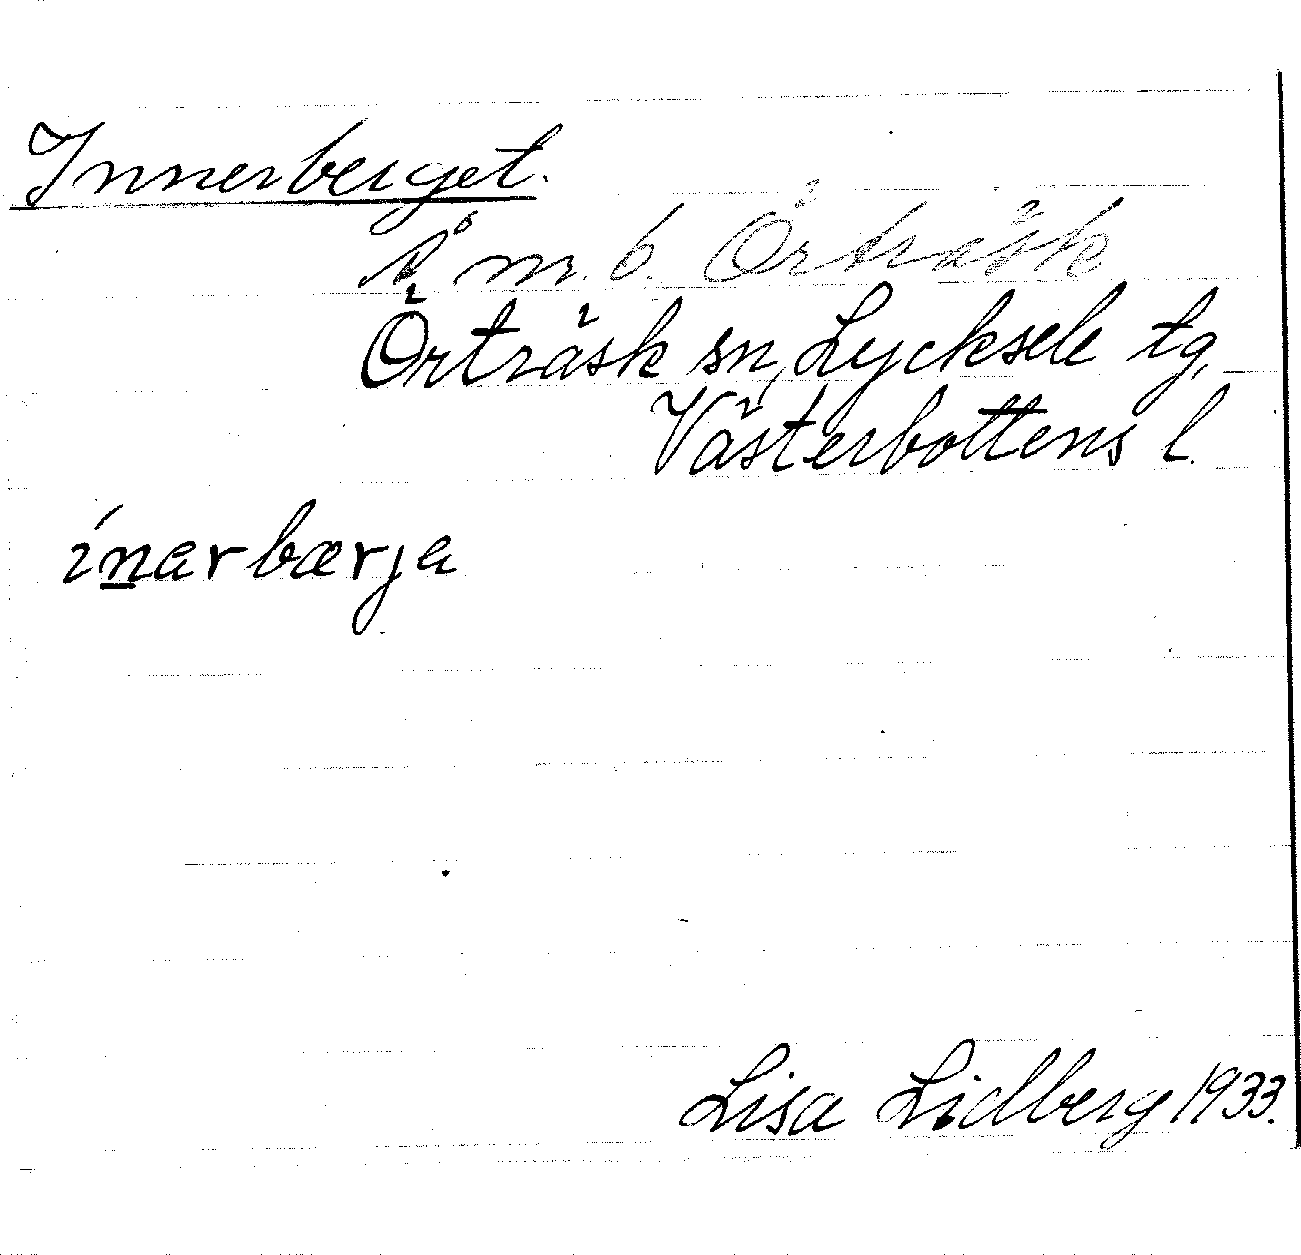 Innerberget.
Å m. b. Örträsk
Örträsk sn, Lycksele tg,
Västerbottens l.
ínarbærja
Lisa Lidberg 1933.